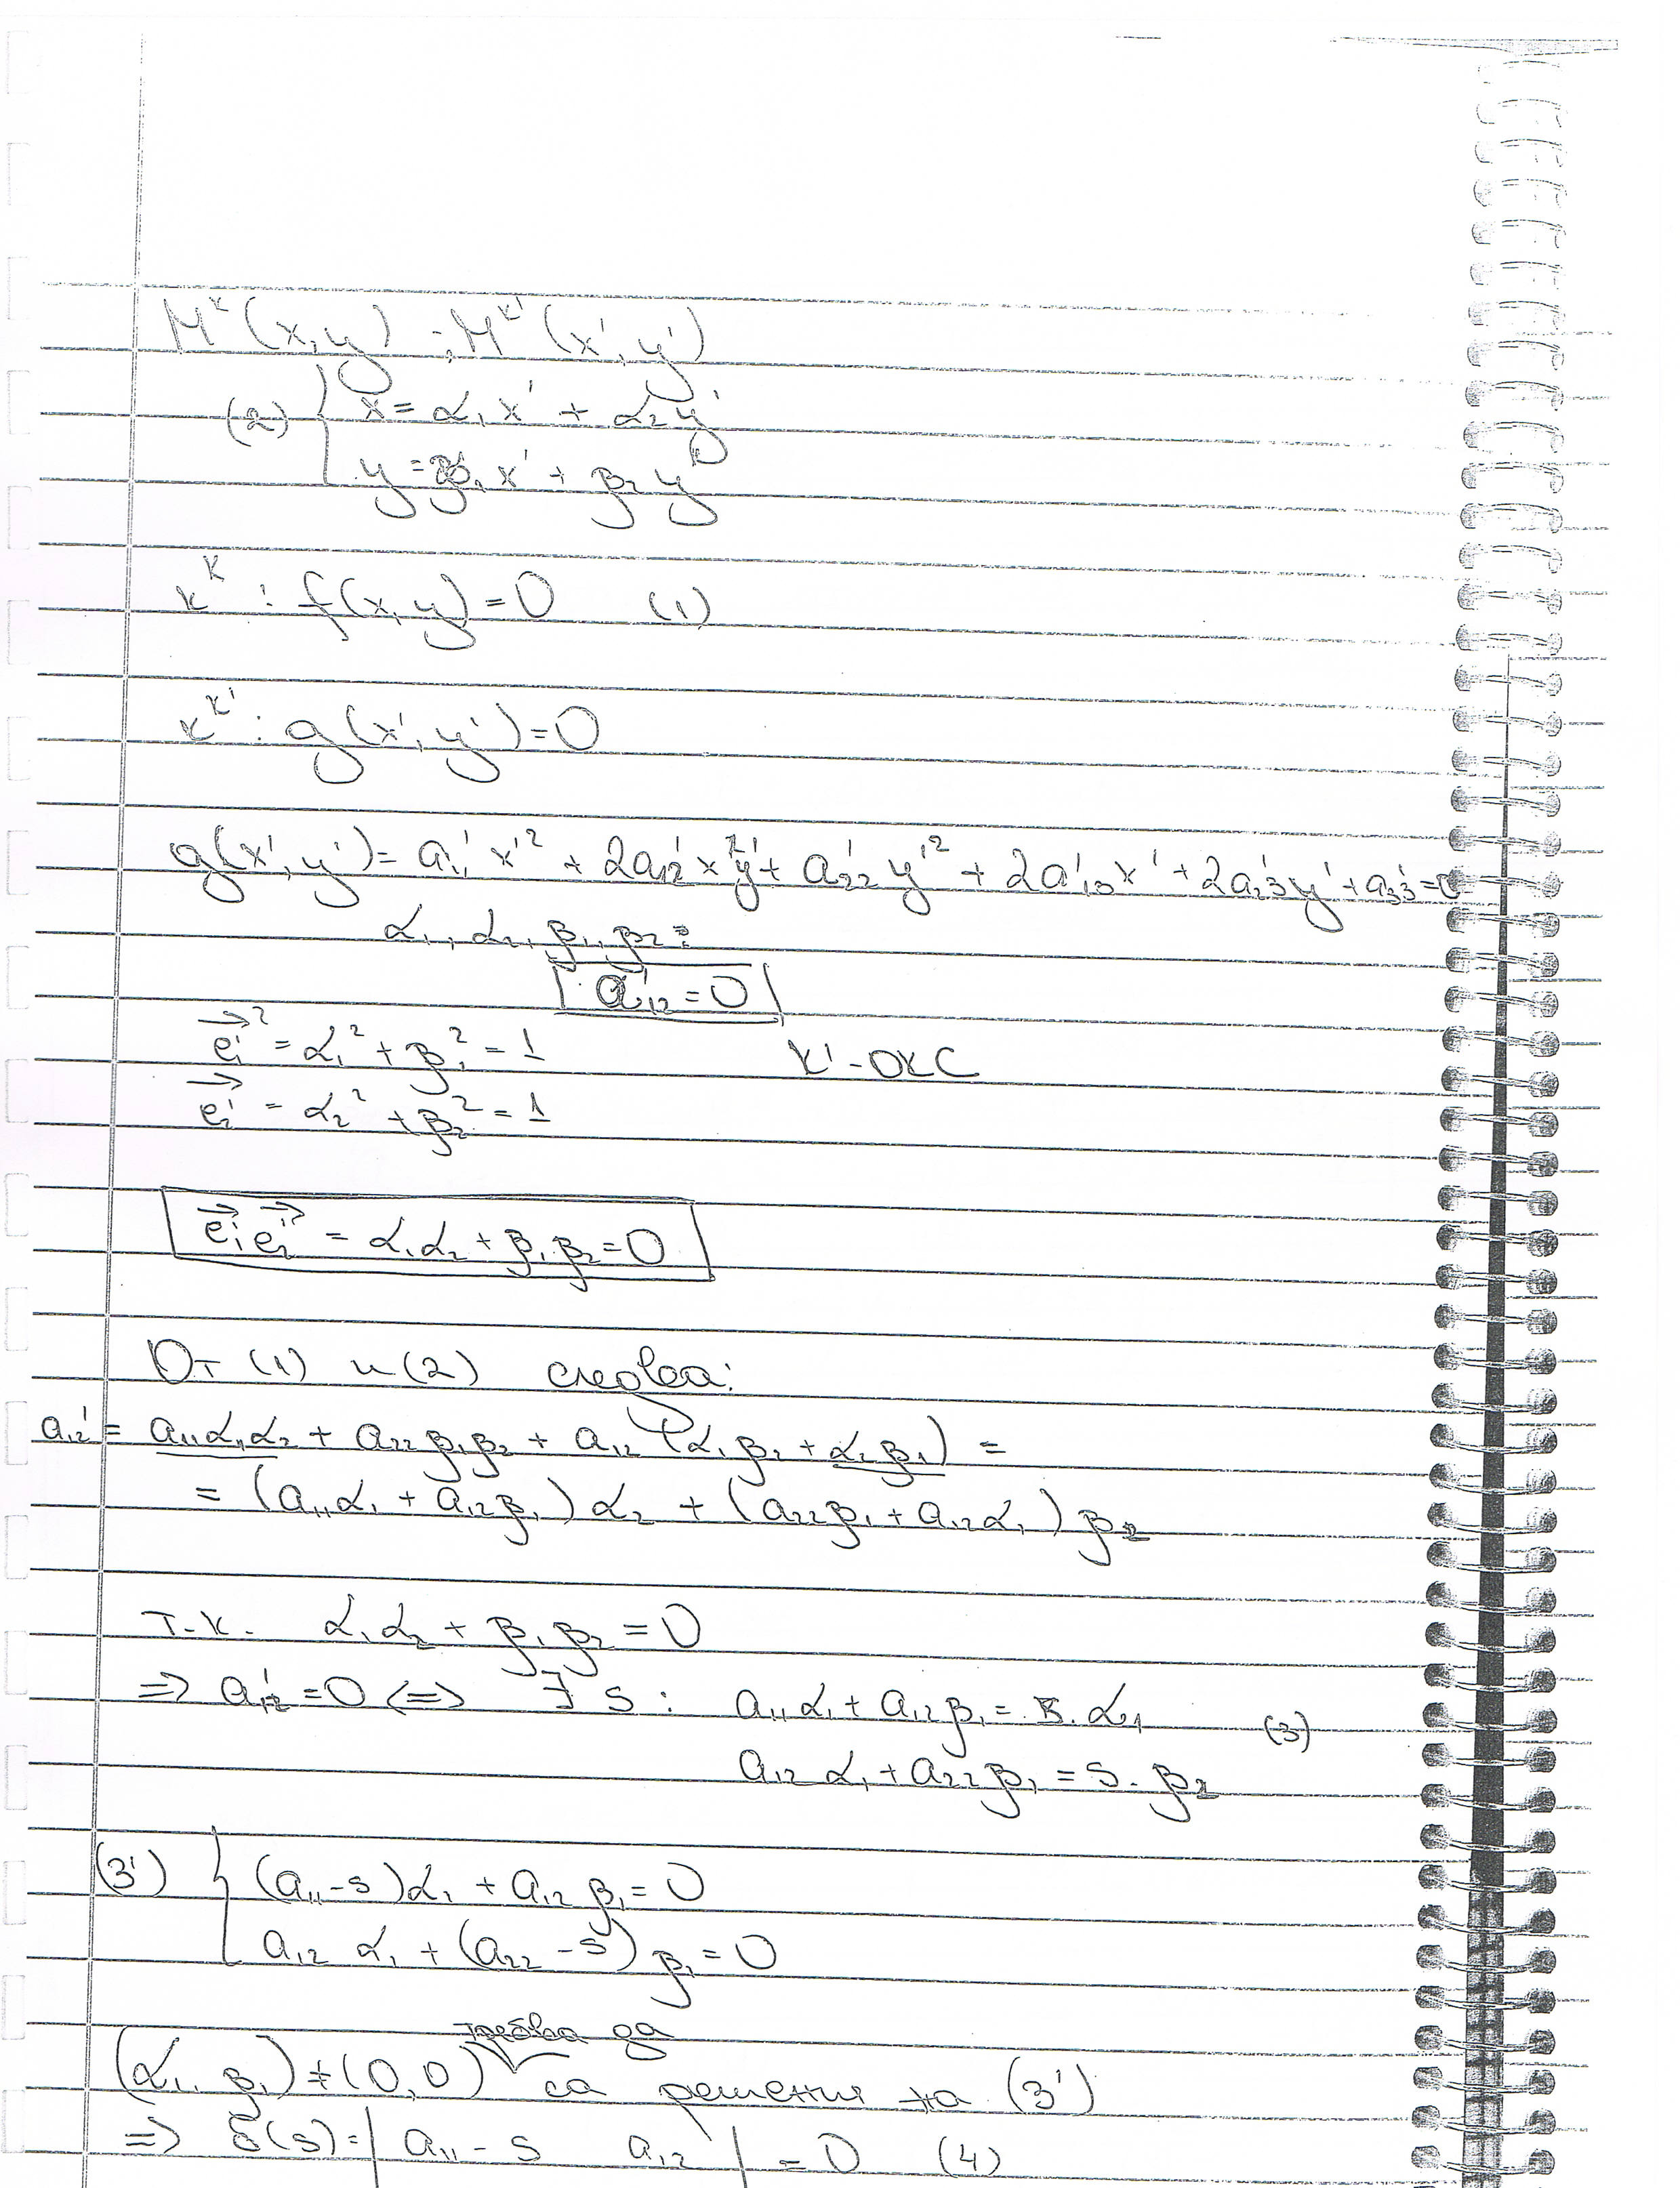 M^K (x, y) ; M^K' (x', y')
(2) { x = α₁x' + α₂y'
y = β₁x' + β₂y'
к^K : f(x, y) = 0 (1)
к^K' : g(x', y') = 0
g(x', y') = a₁₁' x'² + 2a₁₂' x'y' + a₂₂' y'² + 2a'₁₃x' + 2a₂₃'y' + a₃₃' = 0
α₁, α₂, β₁, β₂ ?
a'₁₂ = 0
e₁'→² = α₁² + β₁² = 1 K' - ОКС
e₂'→ = α₂² + β₂² = 1
e₁'→ e₂'→ = α₁α₂ + β₁β₂ = 0
От (1) и (2) следва:
a₁₂' = a₁₁α₁α₂ + a₂₂β₁β₂ + a₁₂ (α₁β₂ + α₂β₁) =
= (a₁₁α₁ + a₁₂β₁) α₂ + (a₂₂β₁ + a₁₂α₁) β₂
т.к. α₁α₂ + β₁β₂ = 0
=> a₁₂' = 0 <=> ∃ s : a₁₁α₁ + a₁₂β₁ = s. α₁ (3)
a₁₂ α₁ + a₂₂β₁ = s. β₂
(3') { (a₁₁ - s)α₁ + a₁₂ β₁ = 0
a₁₂ α₁ + (a₂₂ - s) β₁ = 0
трябва да
(α₁, β₁) ≠ (0, 0) са решения на (3')
=> δ(s) = | a₁₁ - s a₁₂ | = 0 (4)